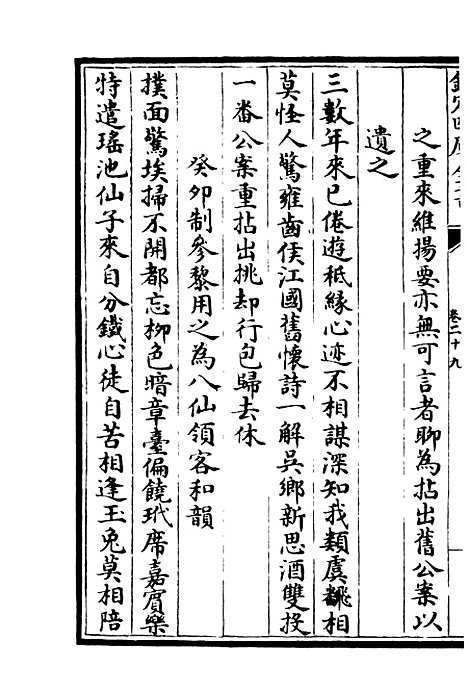 欽定四庫全書
卷二十九
之重來維揚要亦無可言者聊為拈出舊公案以
遺之
三數年來已倦遊秪緣心迹不相謀深知我類虞翻相
莫怪人驚雍齒侯江國舊懷詩一解吳鄉新思酒雙投
一番公案重拈出挑却行包歸去休
癸卯制參黎用之為八仙領客和韻
撲面驚埃掃不開都忘栁色暗章臺偏饒玳席嘉賓樂
特遣瑤池仙子來自分鐵心徒自苦相逢玉兔莫相陪